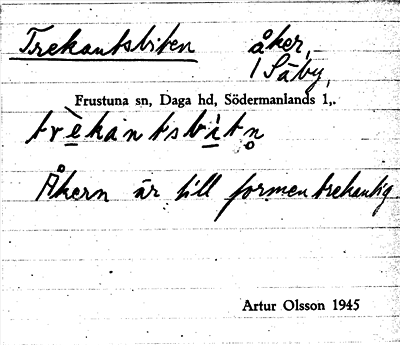 Trekantsbiten åker,
1 Säby,
Frustuna sn, Daga hd, Södermanlands l,.
trèkantsbìtn̥
Åkern är till formen trekantig
Artur Olsson 1945